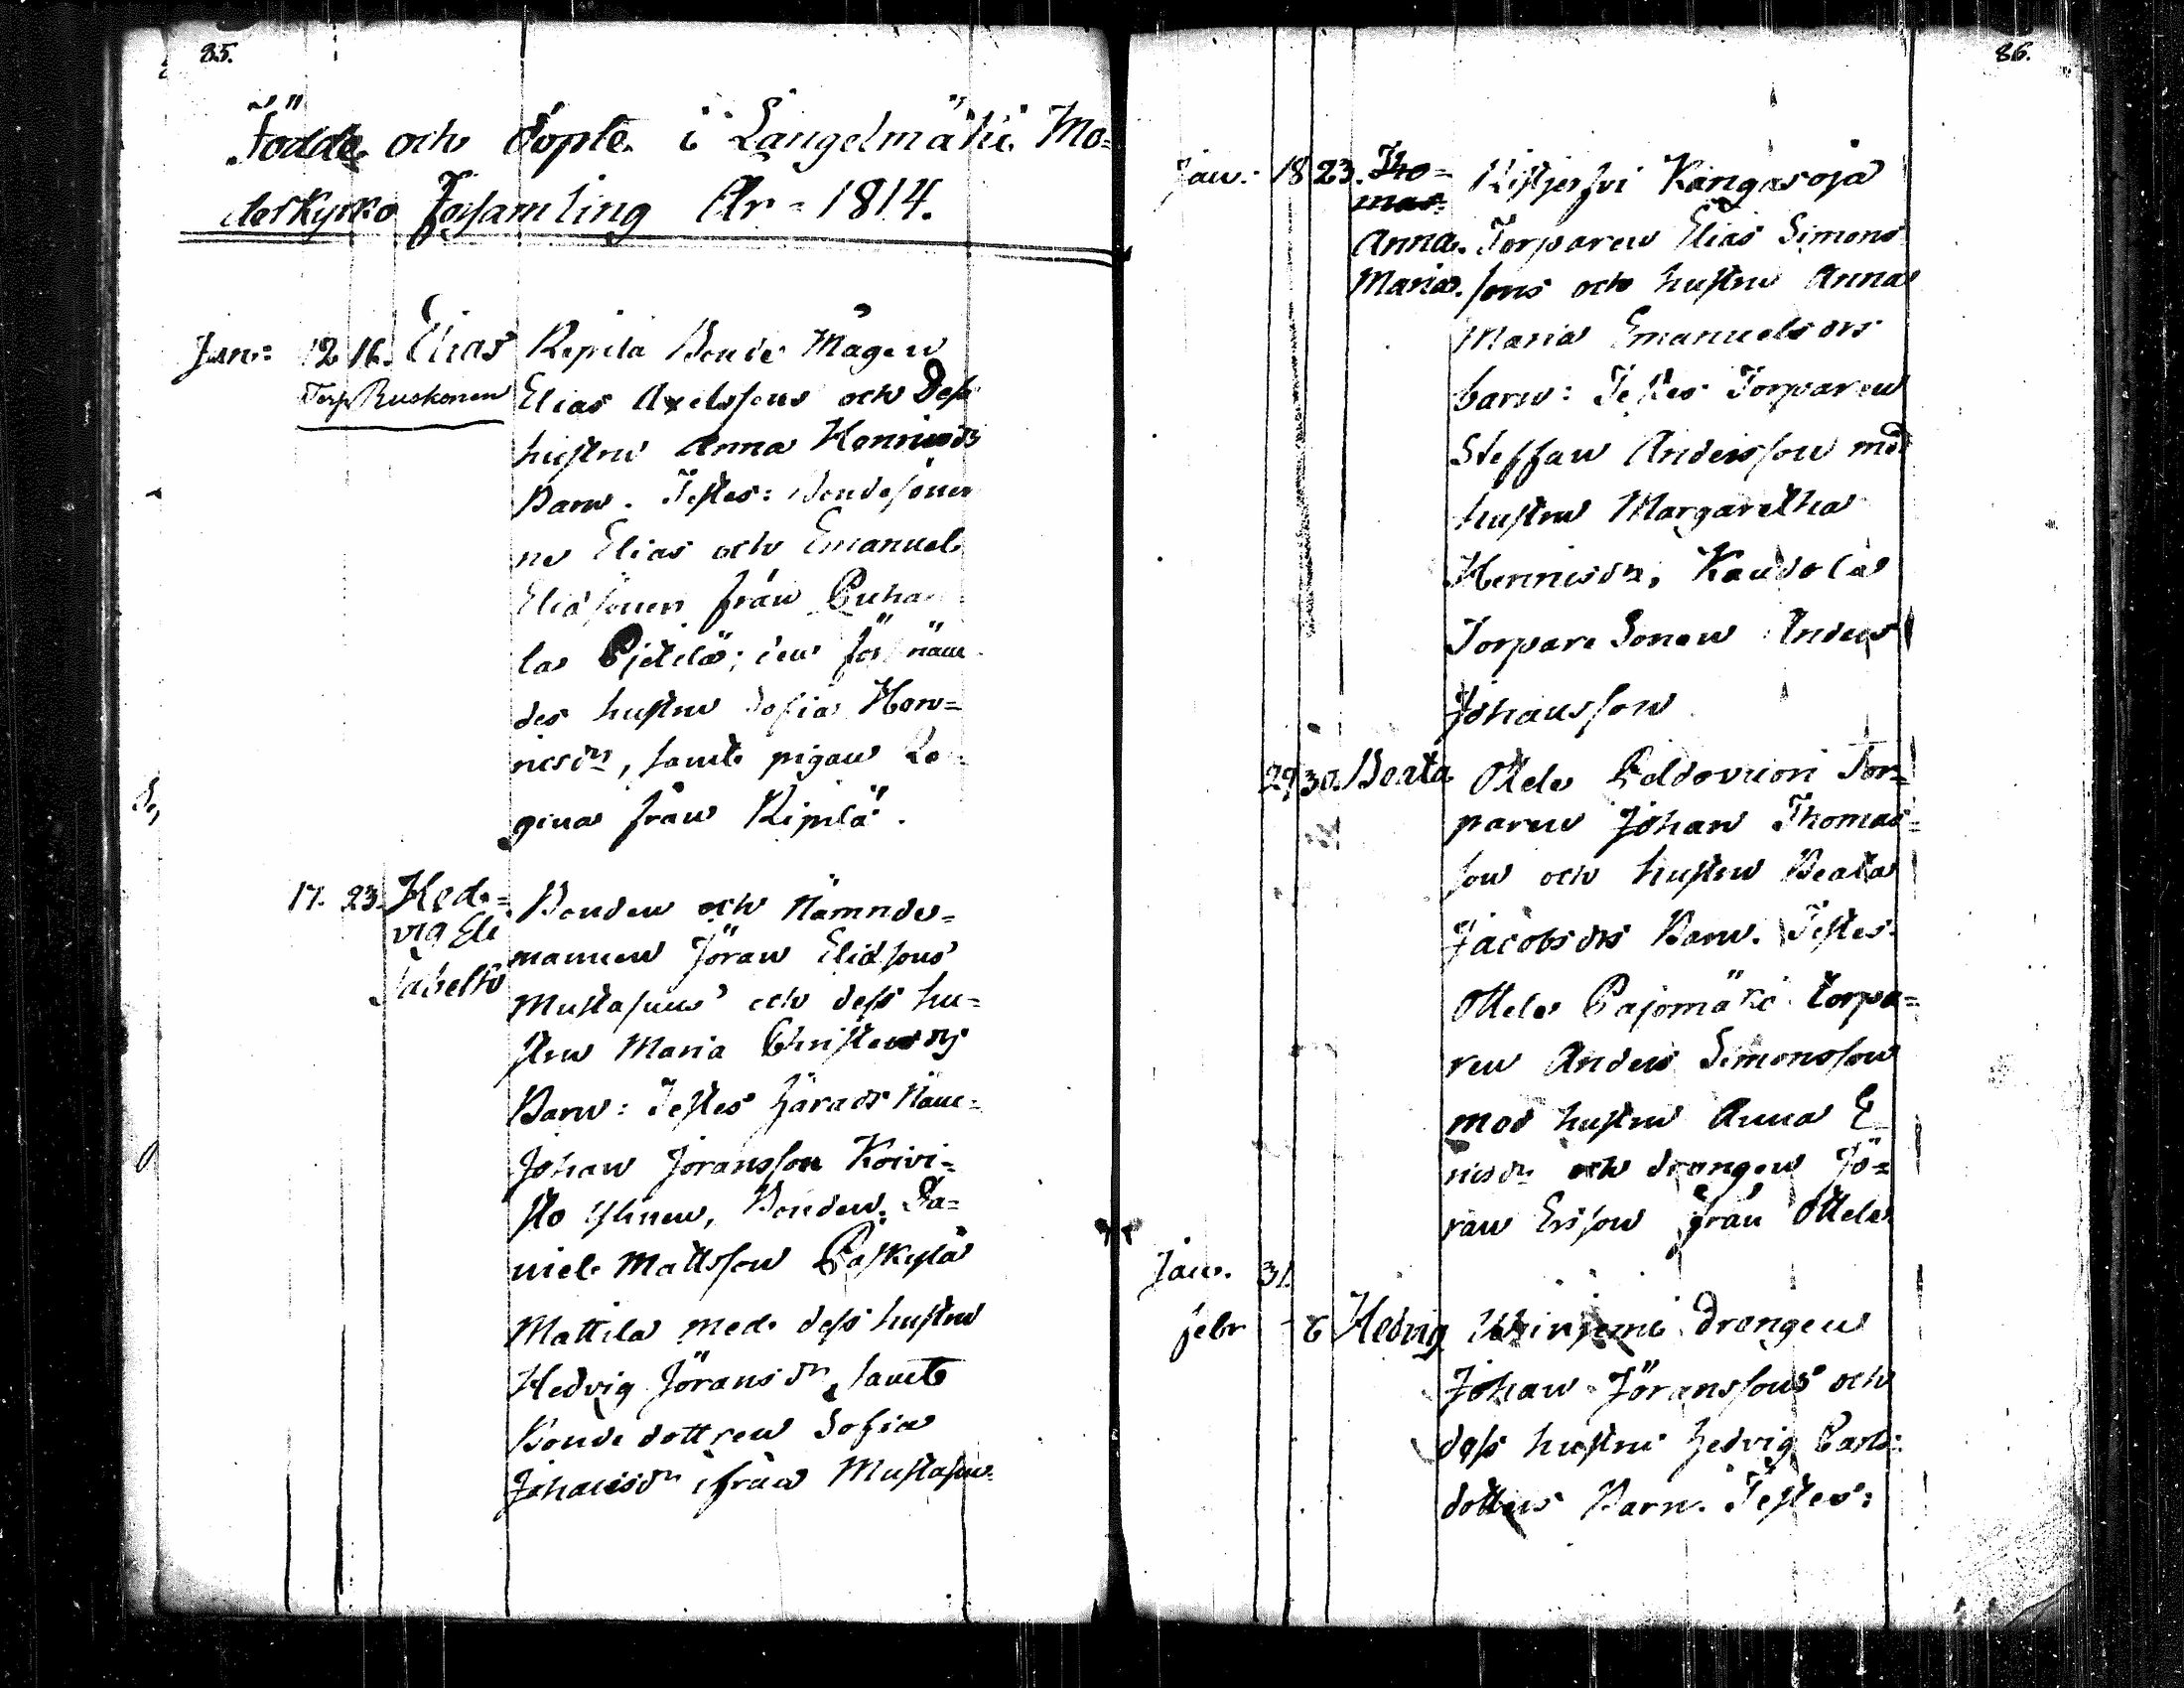 85.
Födde och döpte i Längelmäki Mo=
derkyrko Församling År 1814.
Jan: 12 16. Elias Repila Bonde Mågen
Torp Ruskonen Elias Axelssons och dess
hustru Anna Henricsdrs
Barn. Testes: Bondesöner
ne Elias och Emanuel
Eliæsöner från Puha
la Pjetilä; den förnäm
des hustru Sofia Hen=
ricsdr, samt pigan Re=
gina från Ripilä.
17. 23. Hed= Bonden och Nämnde=
vig Eli mannen Jöran Eliæsons
sabeth Mustasuus och dess hu=
stru Maria Christersdrs
Barn: Testes Härads Näm=
Johan Jöransson Koivi=
sto Yhinen, Bonden Da=
niel Mattsson Paskylä
Mattila med dess hustru
Hedvig Jöransdr, samt
Bondedottren Sofia
Johansdr ifrån Mustasuu
86.
Jan. 18 23. Tho= Kangasoja
mas
Anna Torparen Elias Simons
Maria. sons och hustru Anna
Maria Emanuelsdrs
barn: Testes Torparen
Steffan Andersson med
hustru Margaretha
Henricsdr, Kaudola
Torpare Sonen Anders
Johansson
29 30. Beata Ottela Peldovuori Tor=
paren Johan Thomas=
son och hustru Beata
Jacobsdrs Barn. Testes.
Ottela Pajomäki torpa=
ren Anders Simonsson
med hustru Anna E
ricsdr och drengen Jö=
ran Ersson från Ottela
Jan. 31.
febr - 6 Hedvig drengen
Johan Jöranssons och
dess hustru Hedvig Carls=
dotters Barn. Testes: